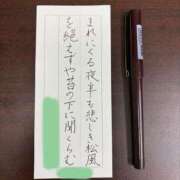 まれにくる夜半も悲しき松風
を絶えずや苔の下に聞くらむ